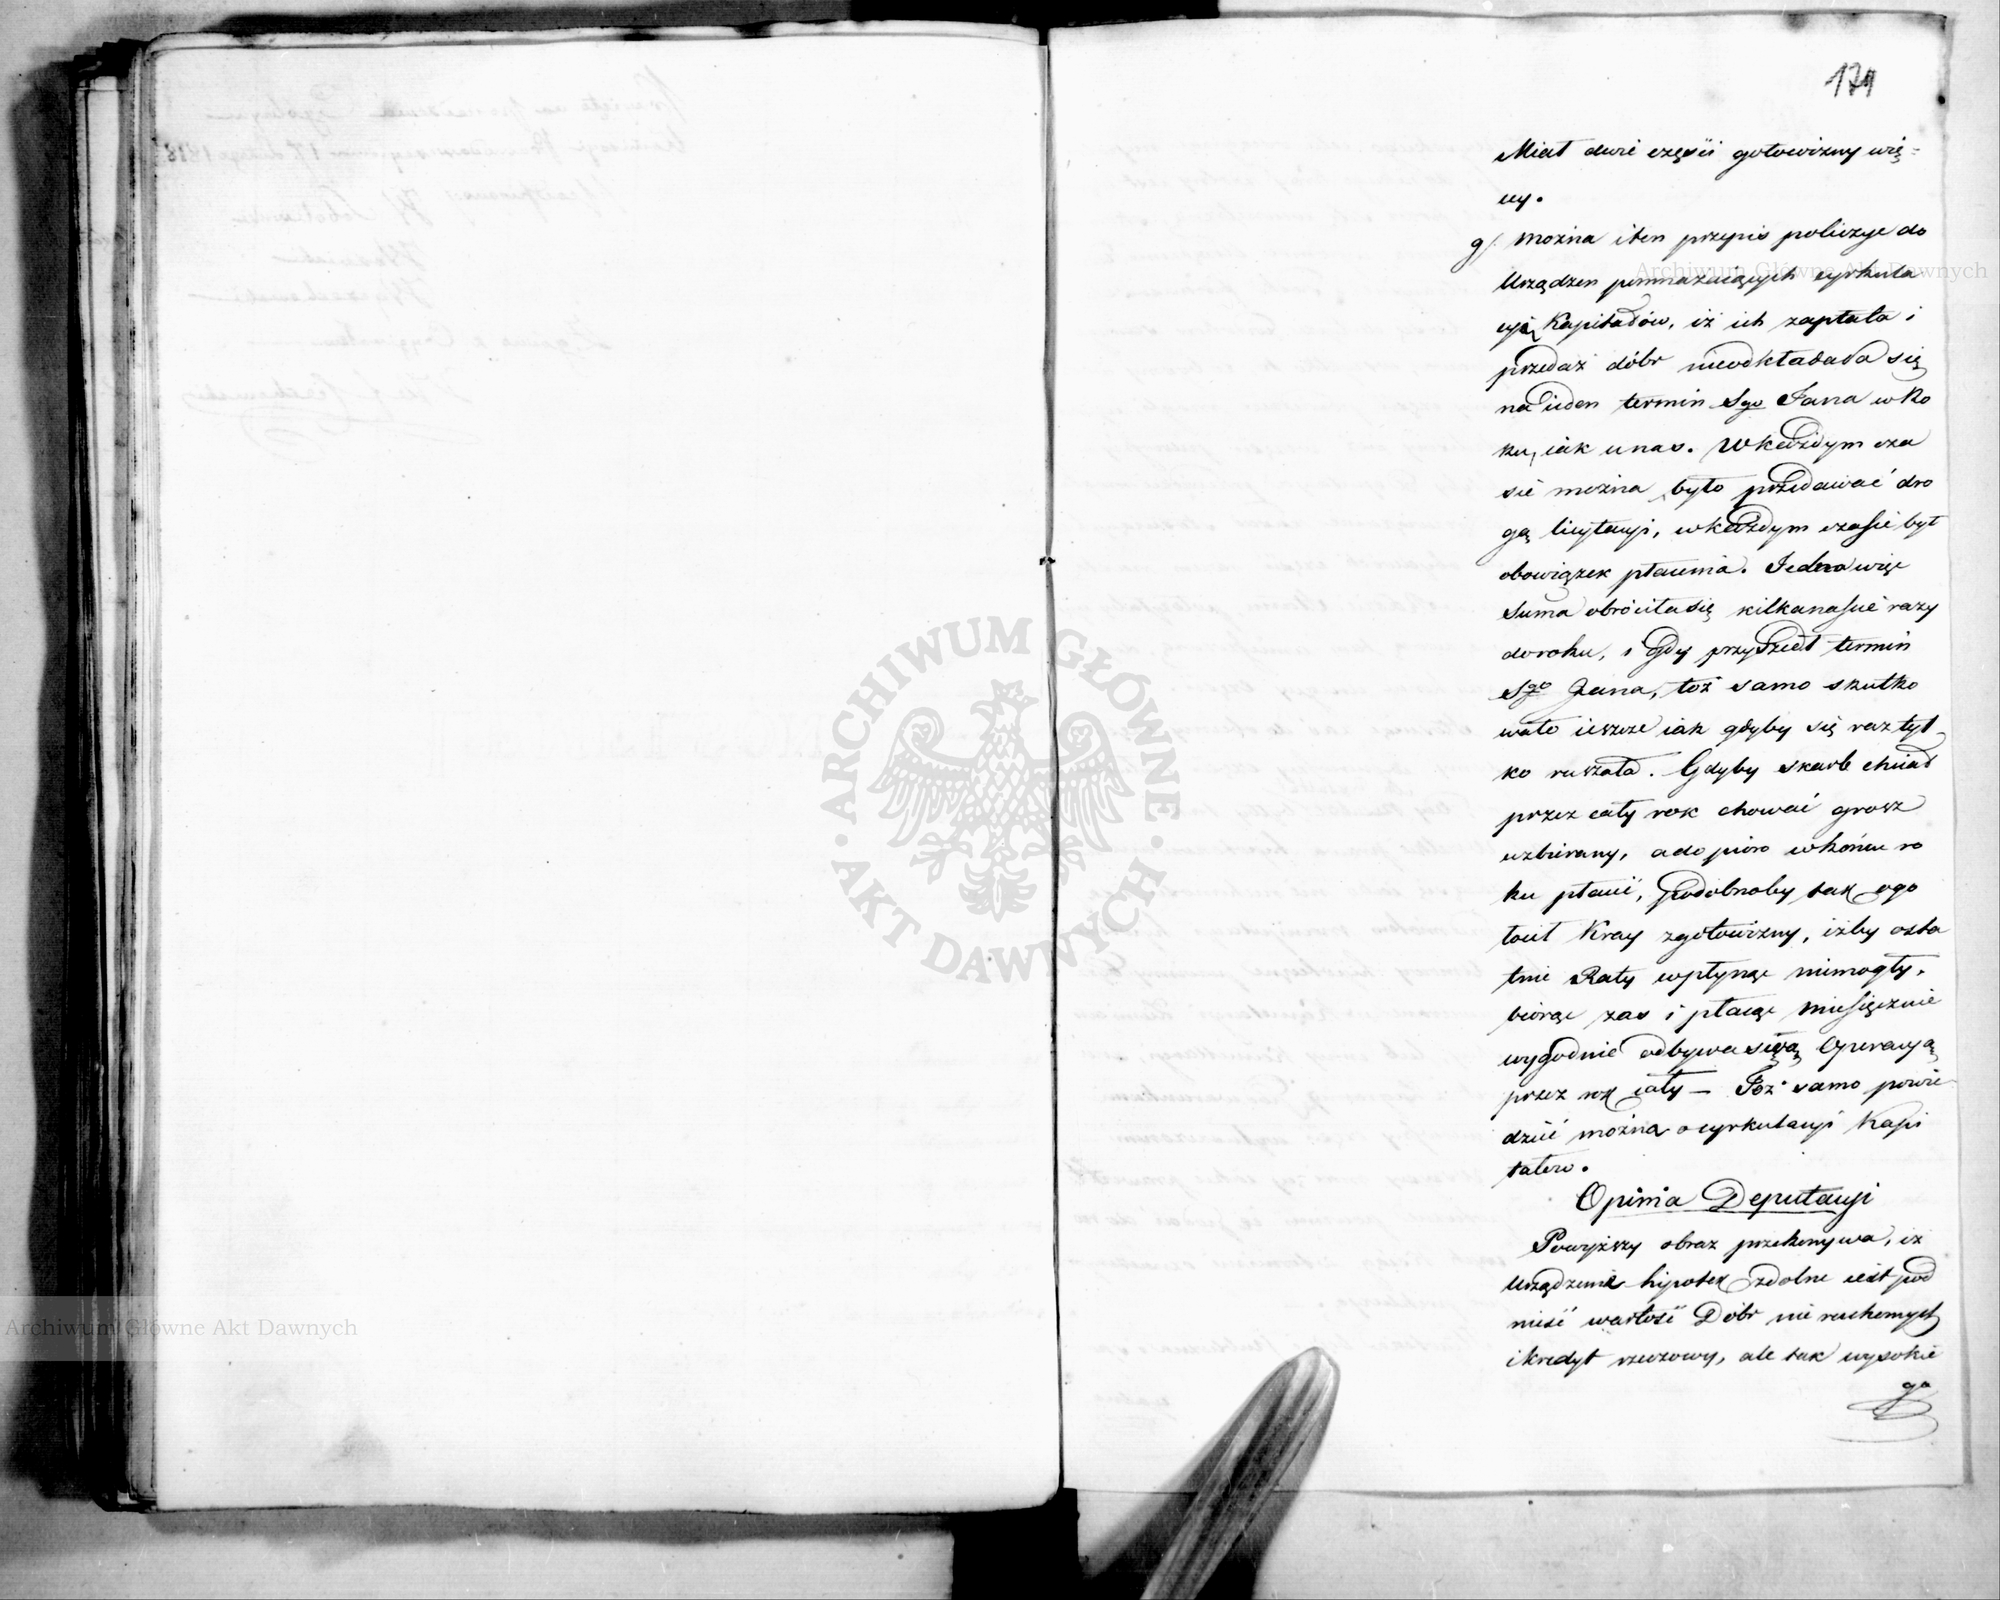 171
Miał dwie części gotowizny wię-
cy.
g/. Można i ten przepis policzyć do
Urządzen pomnażaiących cyrkula
cyią Kapitałów, iż ich zapłata i
przedaż dóbr nieodkładała się
na ieden termin Sgo Jana w Ro
ku, iak u nas. W każdym cza
sie można było przedawać dro
gą licytacyi, w każdym czasie był
obowiązek płacenia. Jedna więc
Suma obróciła się kilkanaście razy
do roku, i gdy przyszedł termin
Sgo Jana, toż samo skutko
wało ieszcze iak gdyby się raz tyl
ko ruszała. Gdyby skarb chciał
przez cały rok chować grosz
uzbierany, a do piero w końcu ro
ku płacić, podobnoby tak ogo
łocił Kray z gotowizny, iżby osta
tnie Raty wpłynąć niemogły,
biorąc zas i płacąc miesięcznie
wygodnie odbywa swą Operacyą
przez rok cały — Toż samo powie
dzieć można o cyrkulacyi Kapi
tałow.
Opinia Deputacyi
Powyższy obraz przekonywa, iż
Urządzenie hipotek zdolne iest pod
nieść wartość Dóbr nie ruchomych
i kredyt rzeczowy, ale tak wysokie
go
Archiwum Główne Akt Dawnych
ARCHIWUM GŁÓWNE AKT DAWNYCH
Archiwum Główne Akt Dawnych